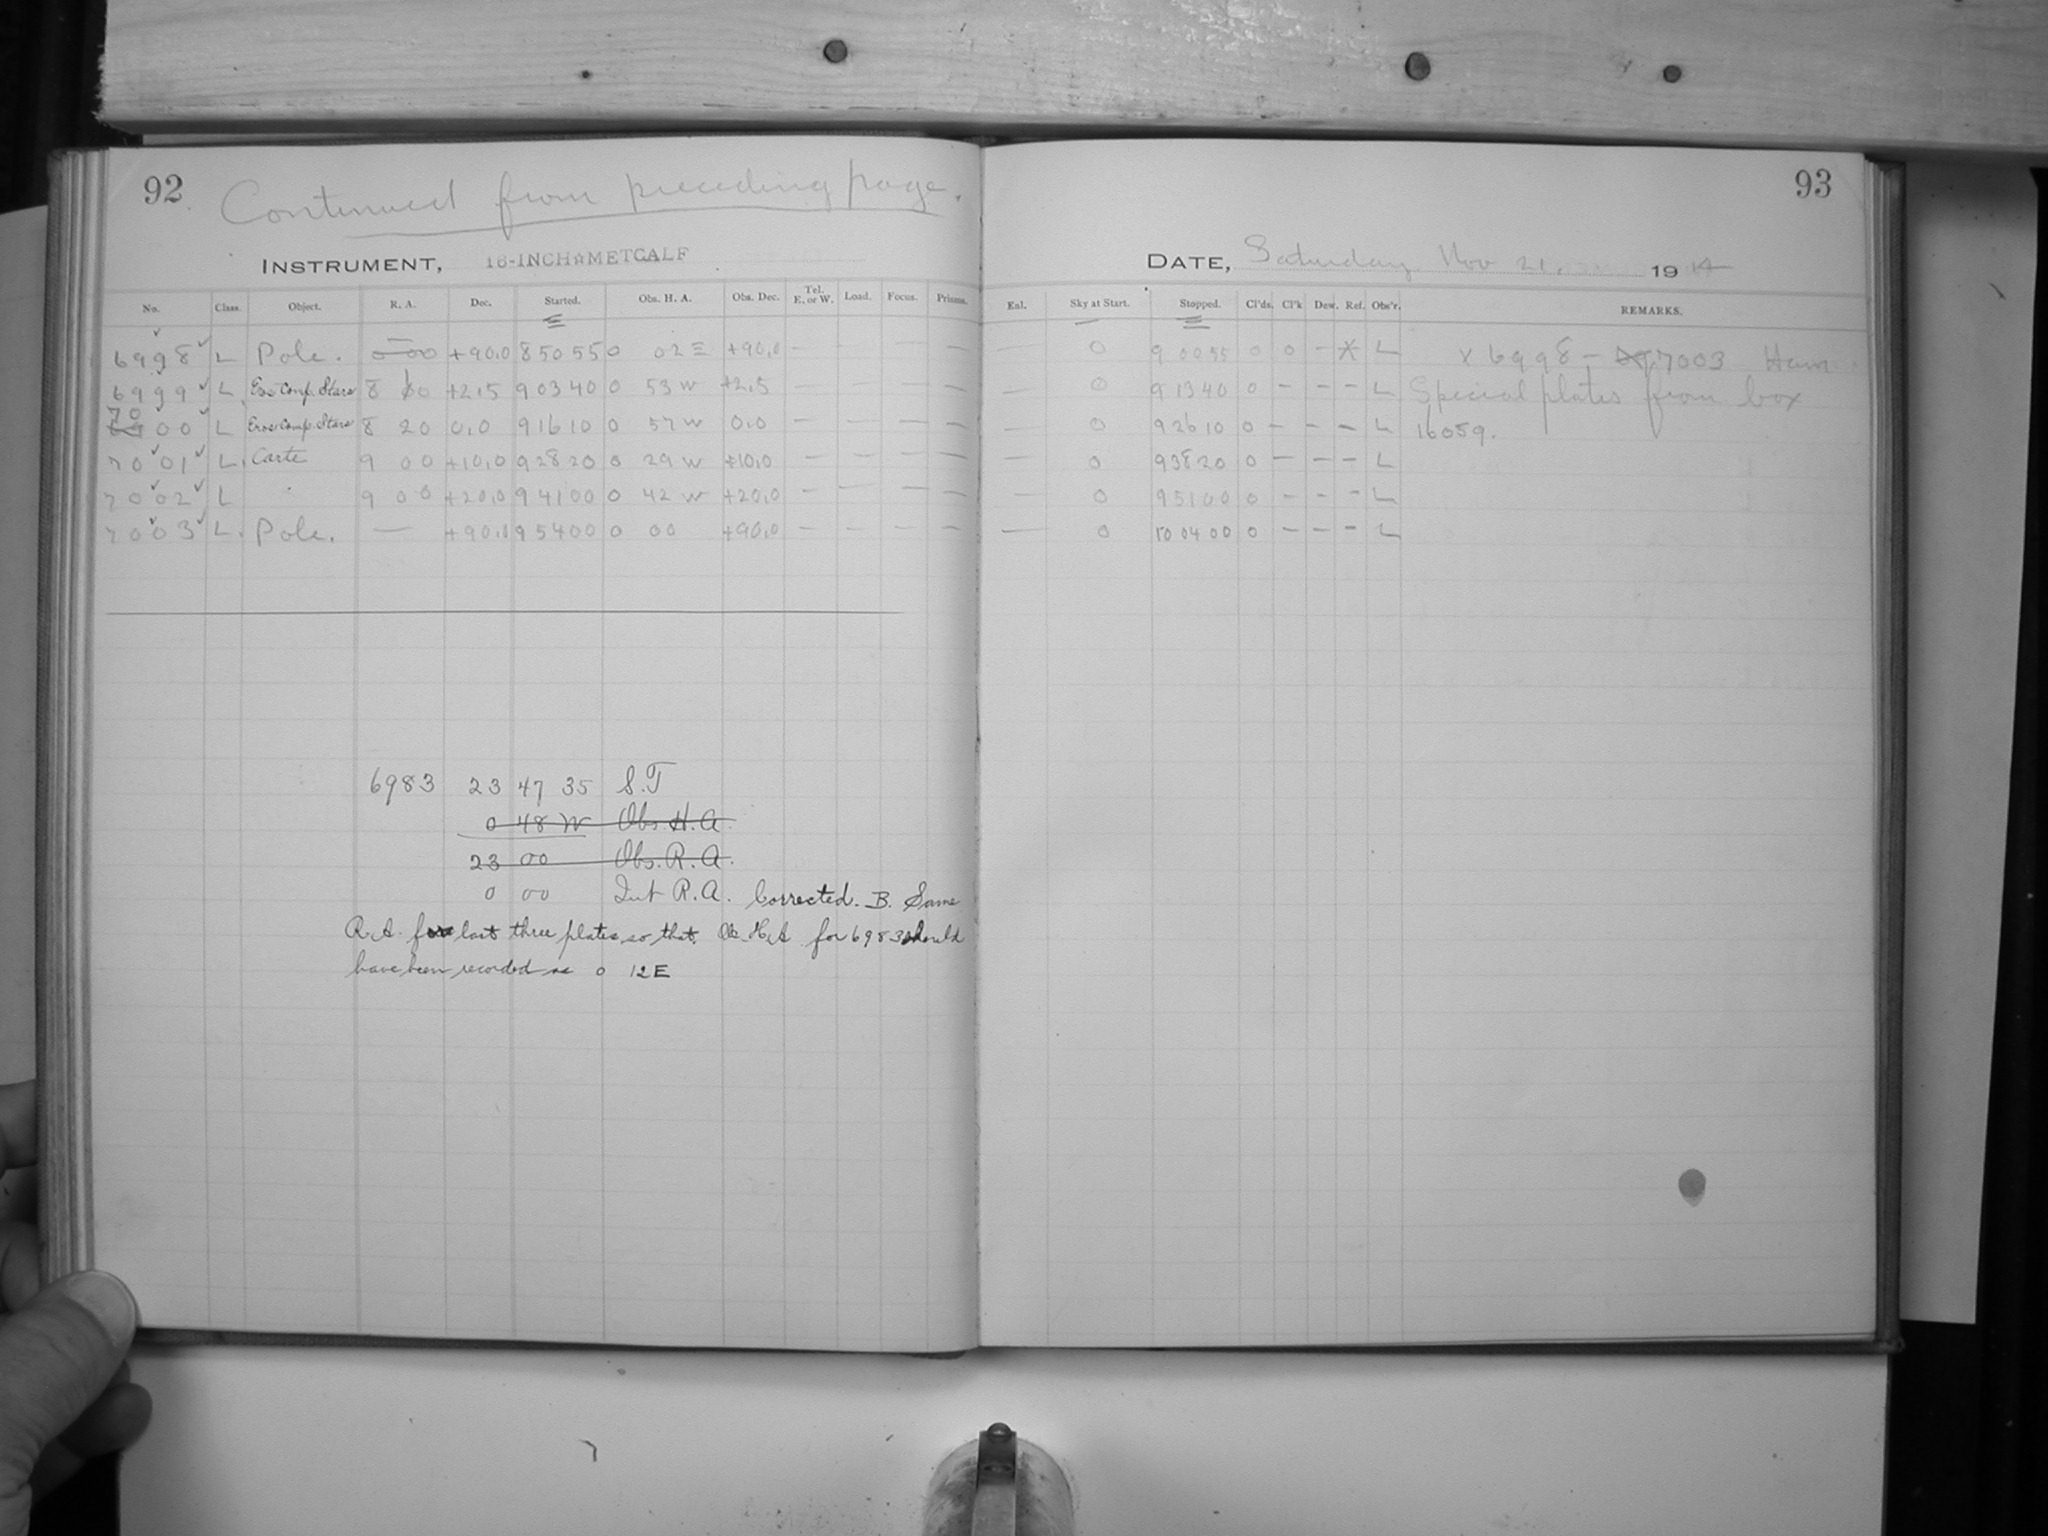 92
Continued from preceding page.
INSTRUMENT, 16-INCH☆METCALF
No. Class. Object. R. A. Dec. Started. Obs. H. A. Obs. Dec. Tel. E. or W. Load. Focus. Prisms.
6998 L Pole. — 0 00 +90,0 8 50 55 0 02 E +90,0 — — — —
6999 L Eros Comp. Stars 8 10 +2,5 9 03 40 0 53 W +2,5 — — — —
7000 L Eros Comp. Stars 8 20 0,0 9 16 10 0 57 W 0,0 — — — —
7001 L. Carte 9 00 +10,0 9 28 20 0 29 W +10,0 — — — —
7002 L " 9 00 +20,0 9 41 00 0 42 W +20,0 — — — —
7003 L. Pole. — +90,0 9 54 00 0 00 +90,0 — — — —
6983 23 47 35 S.T
0 48 W Obs. H. A.
23 00 Obs. R. A.
0 00 Int R. A. Corrected. B. Same
R. A. for last three plates so that Ob. H. A for 6983 should
have been recorded as 0 12 E
93
DATE, Saturday Nov 21, 1914
Enl. Sky at Start. Stopped. Cl'ds. Cl'k Dew. Ref. Obs'r. REMARKS.
— 0 9 00 55 0 0 — X L x 6998 – 7003 Ham
— 0 9 13 40 0 — — — L Special plates from box
— 0 9 26 10 0 — — — L 16059.
— 0 9 38 20 0 — — — L
— 0 9 51 00 0 — — — L
— 0 10 04 00 0 — — — L